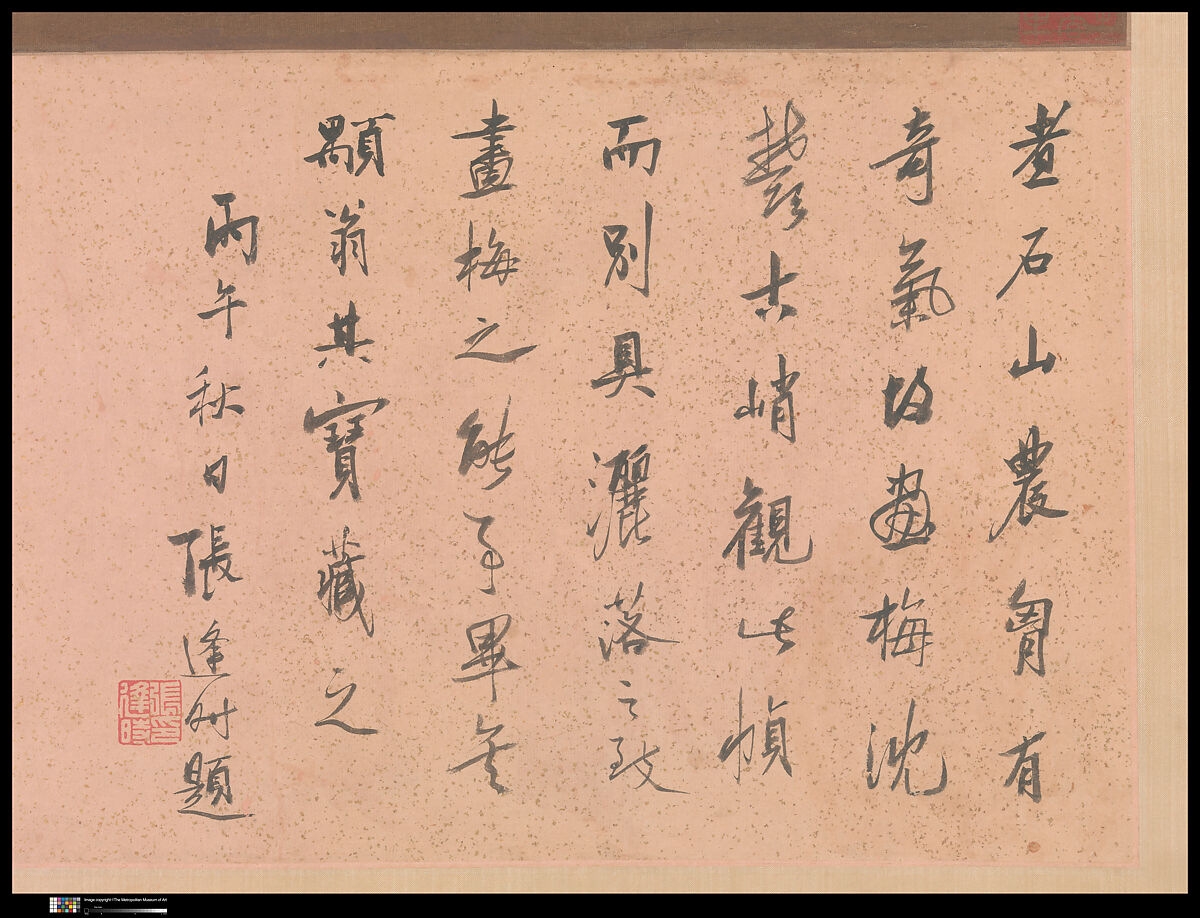 煮石山農胷有
奇氣故畫梅沈
欝古峭觀此幀
而別具灑落之致
畫梅之能事畢矣
顒翁其寶藏之
丙午秋日張逢時題
張印逢時
Image copyright ©The Metropolitan Museum of Art